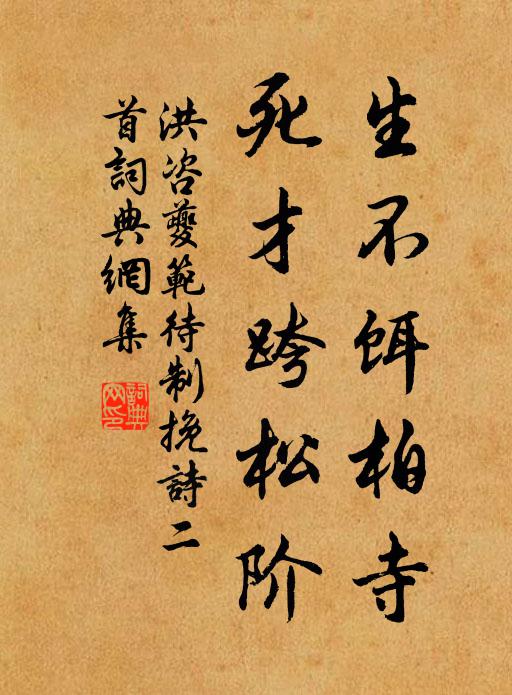 生不饵柏寺
死才跨松阶
洪咨夔範待制挽詩二
首詞典網集
詞典
网印